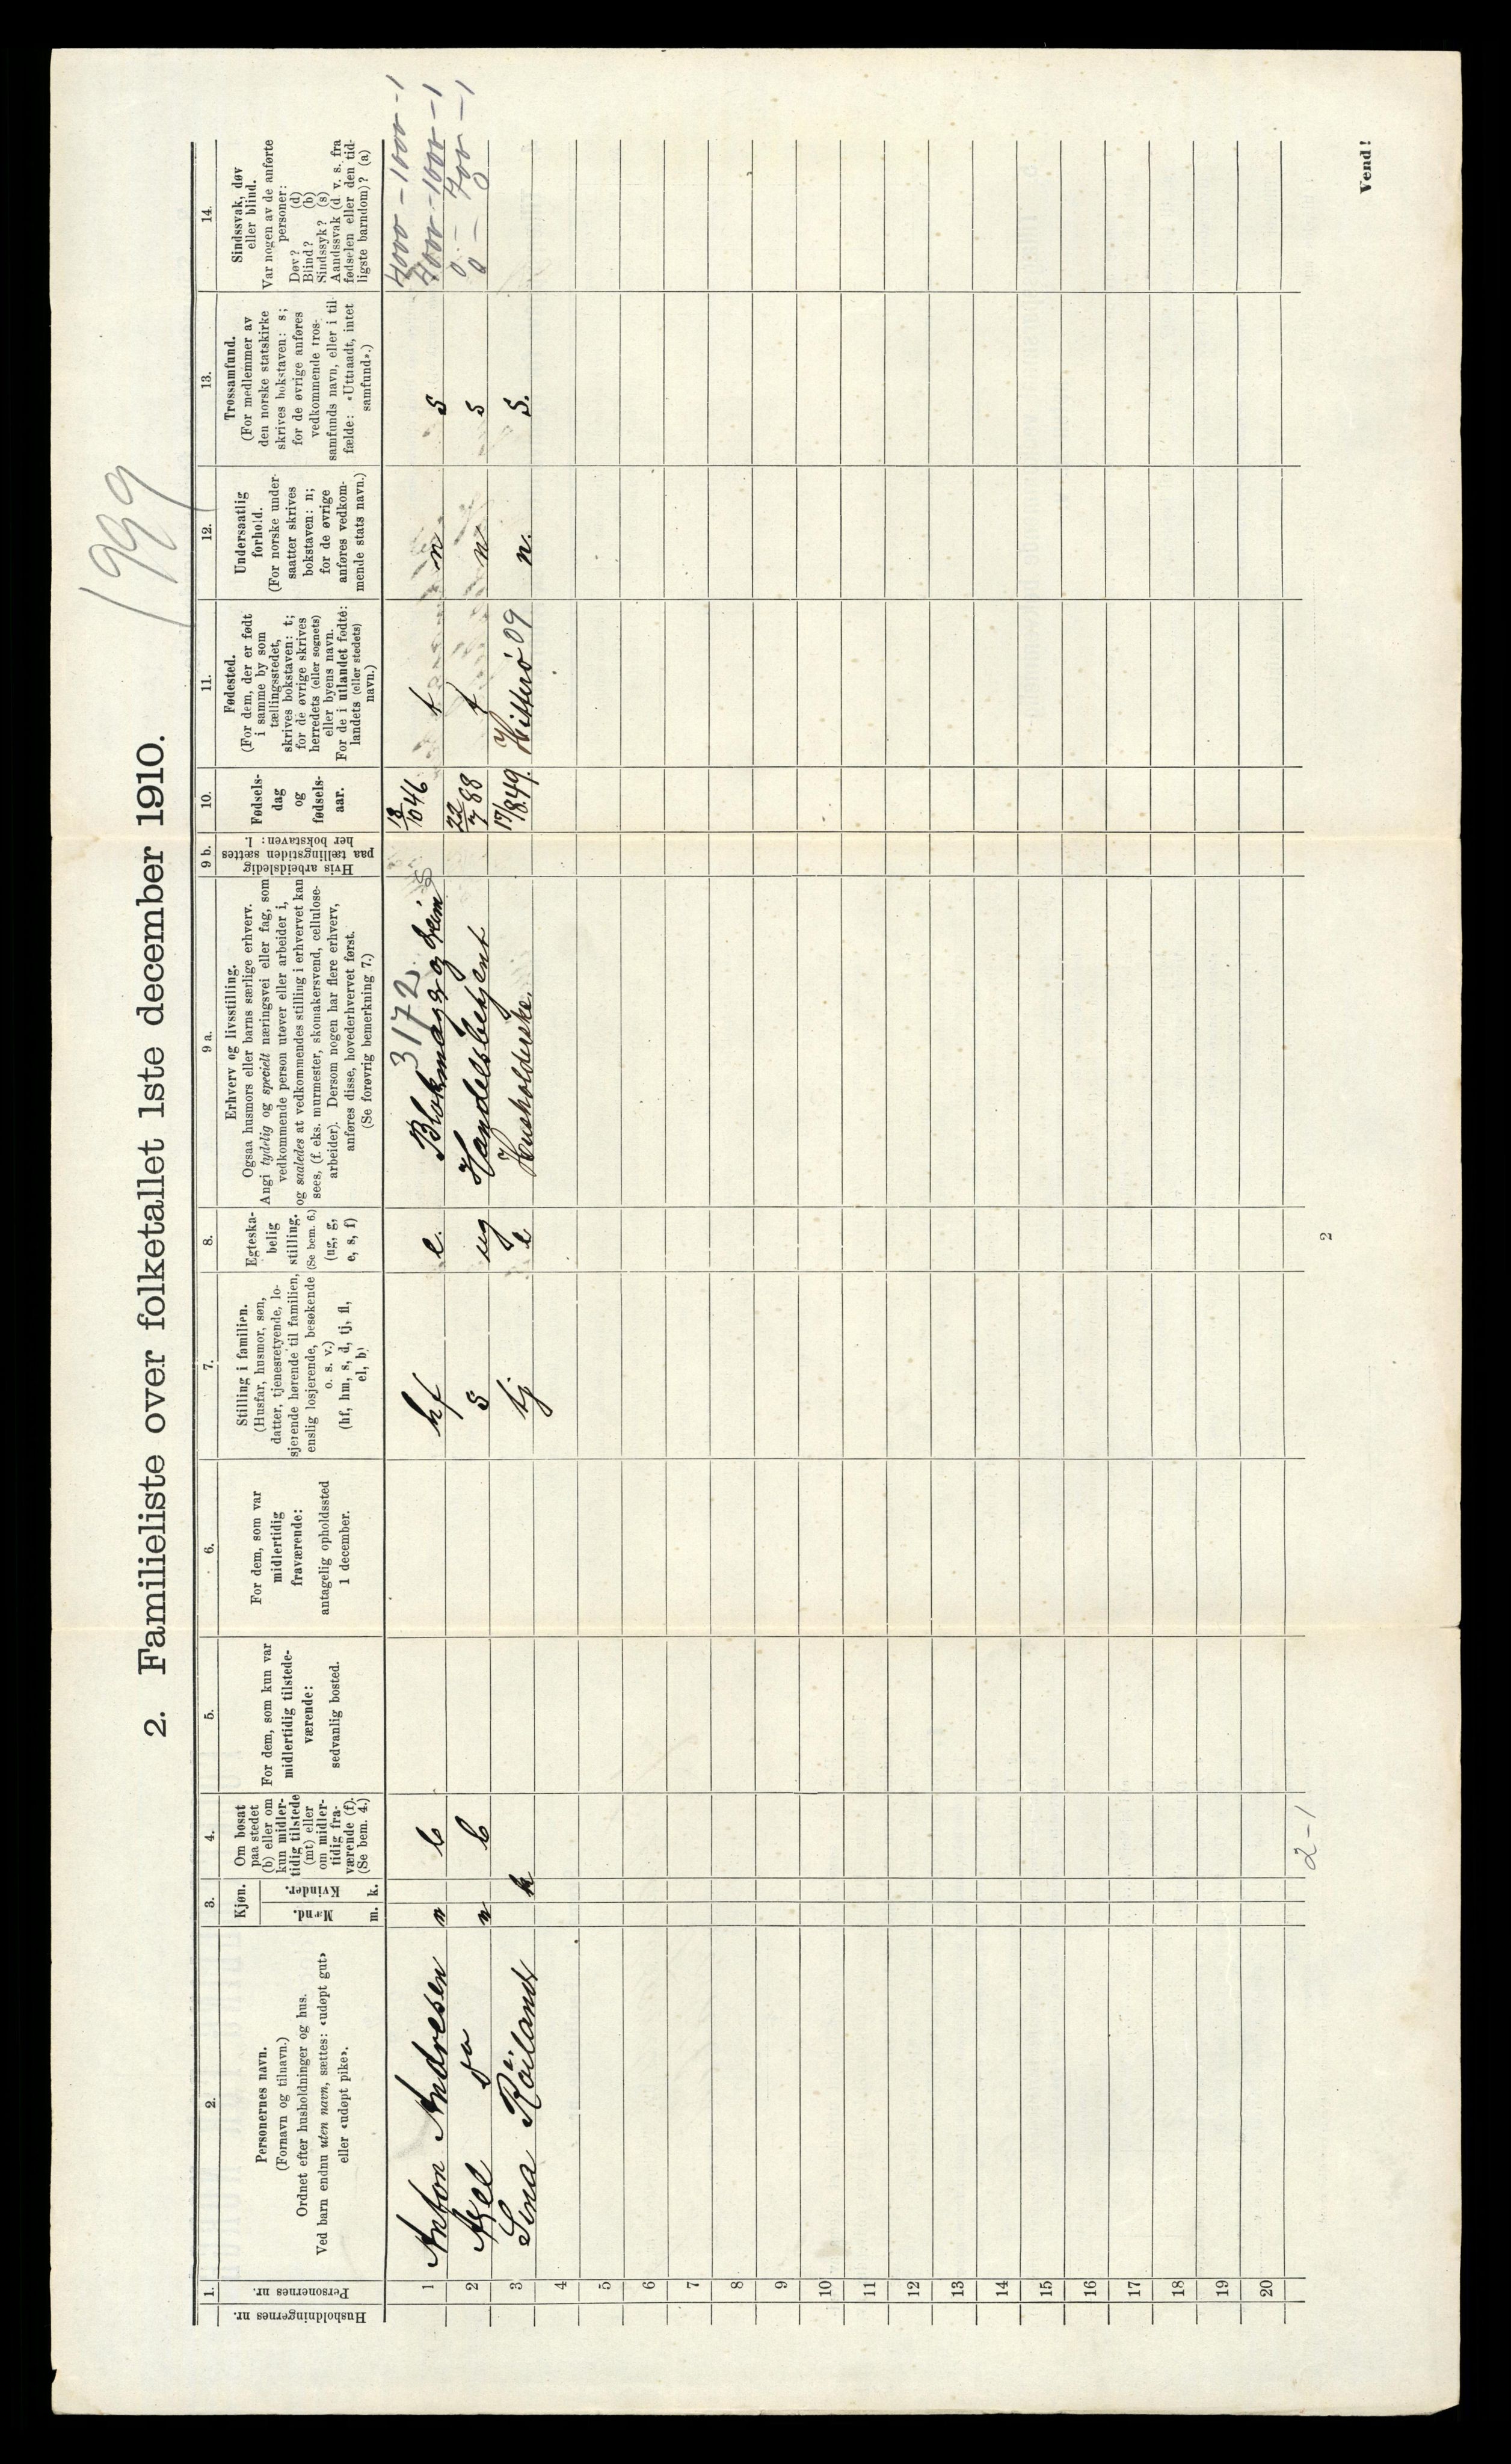 1991
2. Familieliste over folketallet 1ste december 1910.
1. 2. 3. 4. 5. 6. 7. 8. 9 a. 9 b. 10. 11. 12. 13. 14.
Husholdningernes nr.
Personernes nr.
Personernes navn.
(Fornavn og tilnavn.)
Ordnet efter husholdninger og hus.
Ved barn endnu uten navn, sættes: «udøpt gut»
eller «udøpt pike».
Kjøn.
Mænd.
Kvinder.
m. k.
Om bosat
paa stedet
(b) eller om
kun midler-
tidig tilstede
(mt) eller
om midler-
tidig fra-
værende (f).
(Se bem. 4.)
For dem, som kun var
midlertidig tilstede-
værende:
sedvanlig bosted.
For dem, som var
midlertidig
fraværende:
antagelig opholdssted
1 december.
Stilling i familien.
(Husfar, husmor, søn,
datter, tjenestetyende, lo-
sjerende hørende til familien,
enslig losjerende, besøkende
o. s. v.)
(hf, hm, s, d, tj, fl,
el, b)
Egteska-
belig
stilling.
(Se bem. 6.)
(ug, g,
e, s, f)
Erhverv og livsstilling.
Ogsaa husmors eller barns særlige erhverv.
Angi tydelig og specielt næringsvei eller fag, som
vedkommende person utøver eller arbeider i,
og saaledes at vedkommendes stilling i erhvervet kan
sees, (f. eks. murmester, skomakersvend, cellulose-
arbeider). Dersom nogen har flere erhverv,
anføres disse, hovederhvervet først.
(Se forøvrig bemerkning 7.)
Hvis arbeidsledig
paa tællingstiden sættes
her bokstaven: l.
Fødsels-
dag
og
fødsels-
aar.
Fødested.
(For dem, der er født
i samme by som
tællingsstedet,
skrives bokstaven: t;
for de øvrige skrives
herredets (eller sognets)
eller byens navn.
For de i utlandet fødte:
landets (eller stedets)
navn.)
Undersaatlig
forhold.
(For norske under-
saatter skrives
bokstaven: n;
for de øvrige
anføres vedkom-
mende stats navn.)
Trossamfund.
(For medlemmer av
den norske statskirke
skrives bokstaven: s;
for de øvrige anføres
vedkommende tros-
samfunds navn, eller i til-
fælde: «Uttraadt, intet
samfund».)
Sindssvak, døv
eller blind.
Var nogen av de anførte
personer:
Døv? (d)
Blind? (b)
Sindssyk? (s)
Aandssvak (d. v. s. fra
fødselen eller den tid-
ligste barndom)? (a)
3172
4000 - 1000 - 1
1 Anton Andresen m b hf e. Blokmager 18/10 46 t n s 4000 - 1000 - 1
0 - 700 - 1
2 Axel do m b s ug Handelsbetjent 22/7 88 t n s
3 Sina Röiland k tj e Husholderske. 17/8 49. Hitterö 09 n. s.
4
5
6
7
8
9
10
11
12
13
14
15
16
17
18
19
20
2-1
2
Vend!